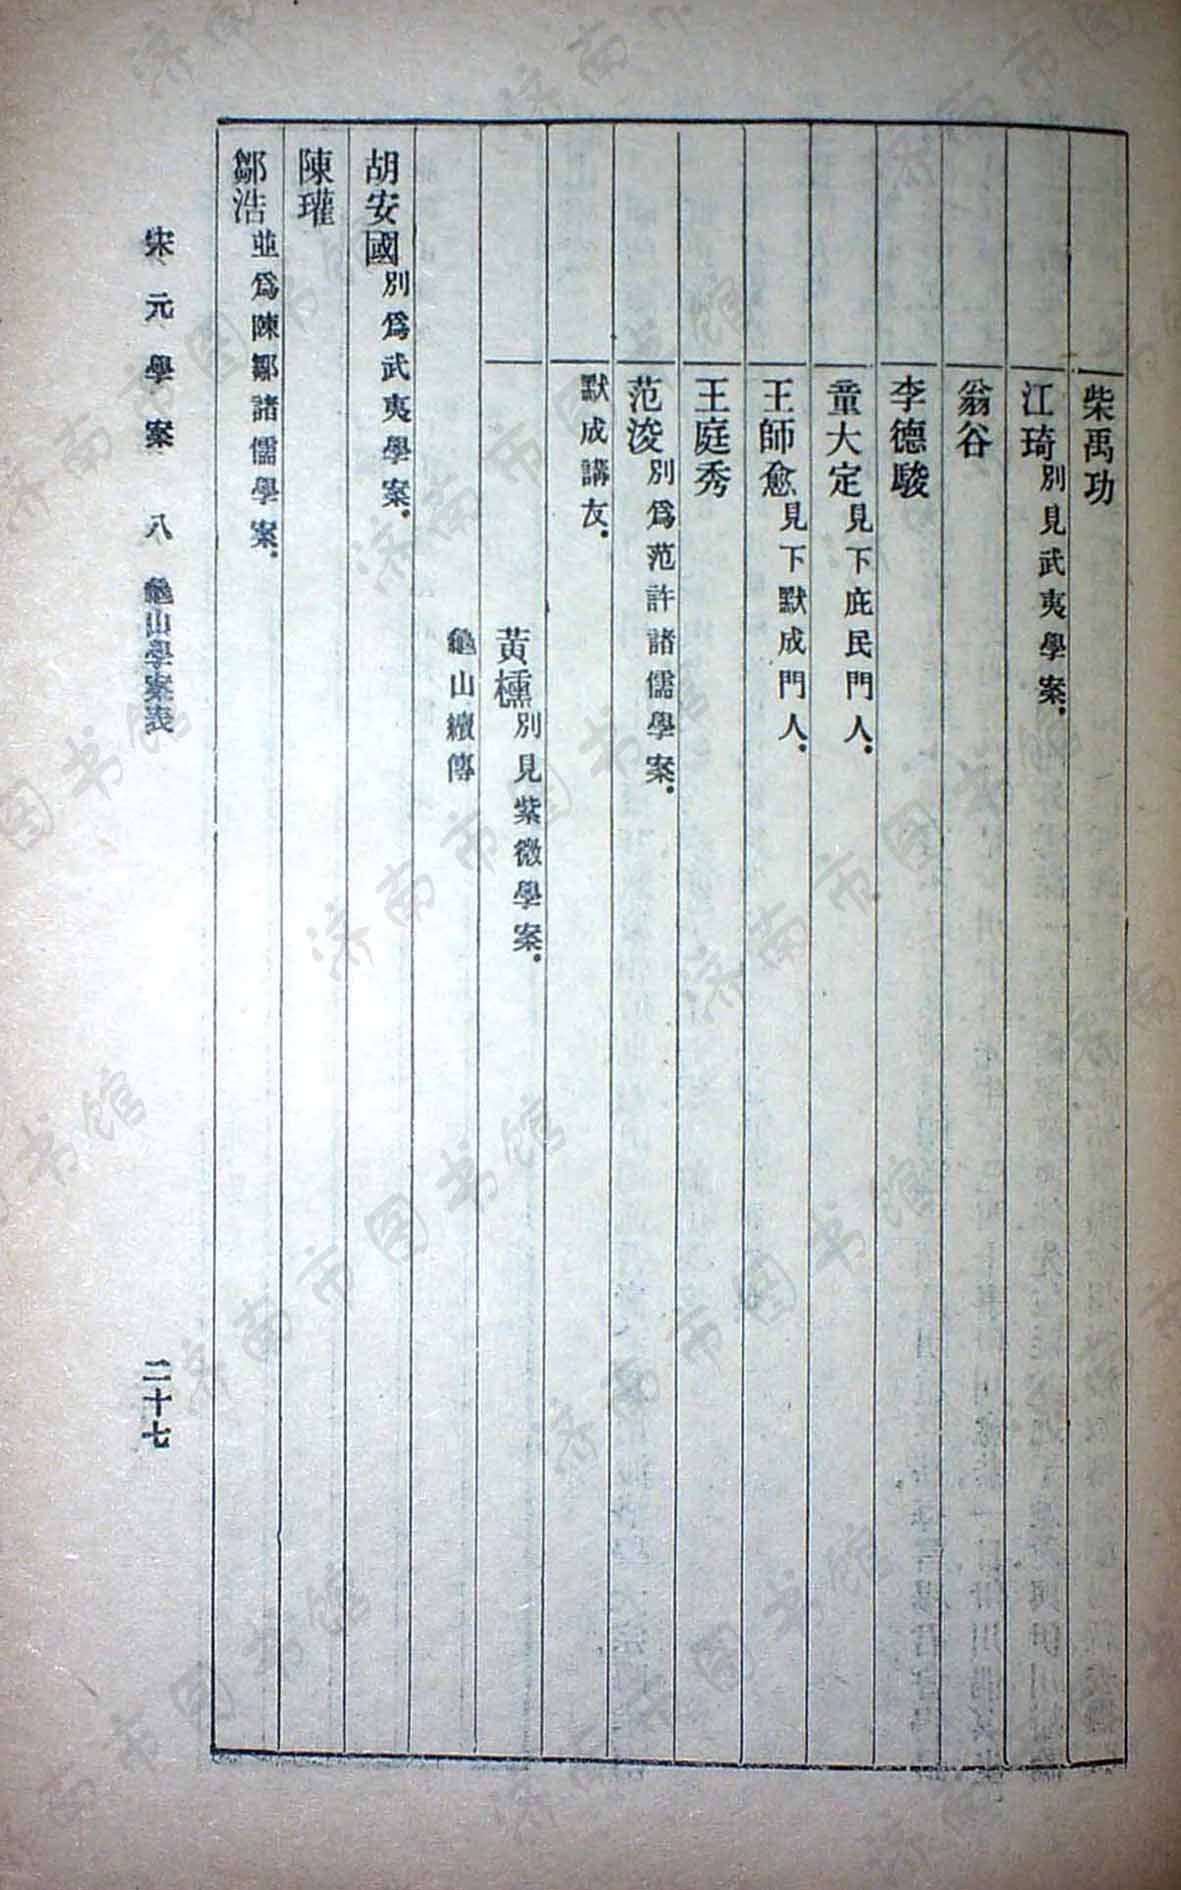 柴禹功
江琦別見武夷學案．
翁谷
李德駿
童大定見下庇民門人．
王師愈見下默成門人．
王庭秀
范浚別爲范許諸儒學案．
默成講友．
黃櫄別見紫微學案．
龜山續傳
胡安國別爲武夷學案．
陳瓘
鄒浩並爲陳鄒諸儒學案．
宋元學案 八 龜山學案表 二十七
济南市图书馆